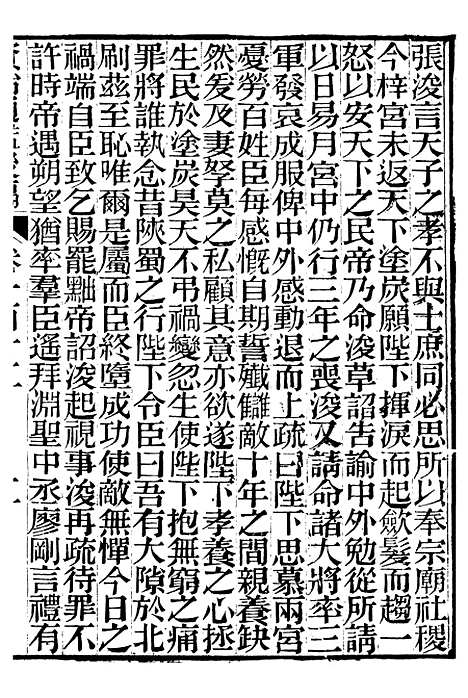 張浚言天子之孝不與士庶同必思所以奉宗廟社稷
今梓宮未返天下塗炭願陛下揮淚而起歛髮而趨一
怒以安天下之民帝乃命浚草詔告諭中外勉從所請
以日易月宮中仍行三年之喪浚又請命諸大將率三
軍發哀成服俾中外感動退而上疏曰陛下思慕兩宮
憂勞百姓臣每感慨自期誓殲讎敵十年之間親養缺
然爰及妻孥莫之私顧其意亦欲遂陛下孝養之心拯
生民於塗炭昊天不弔禍變忽生使陛下抱無窮之痛
罪將誰執念昔陝蜀之行陛下令臣曰吾有大隙於北
刷茲至恥唯爾是屬而臣終隳成功使敵無憚今日之
禍端自臣致乞賜罷黜帝詔浚起視事浚再疏待罪不
許時帝遇朔望猶率羣臣遙拜淵聖中丞廖剛言禮有